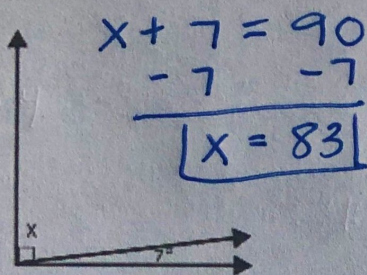 x + 7 = 90
- 7 -7
x = 83
x
7°